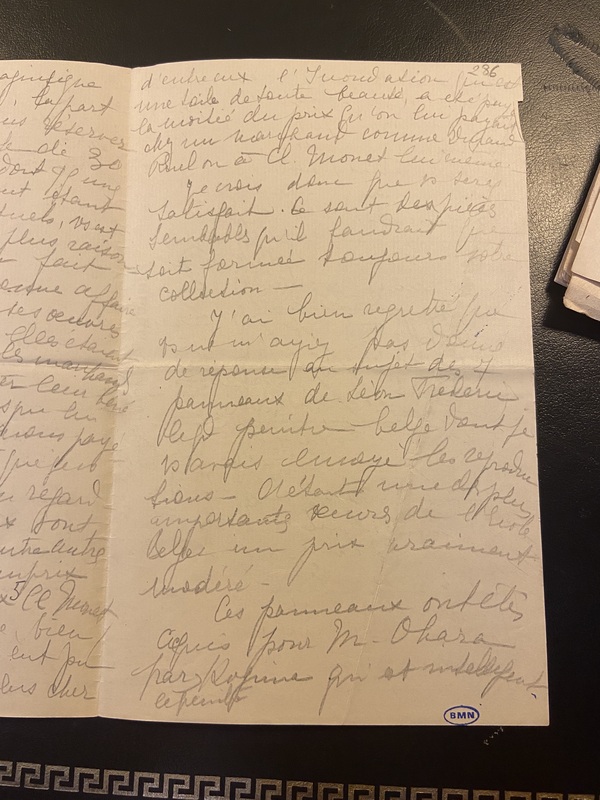 agnifique
la part
us réserver
de 30
dont j'ai une
ut étant
tuels, vs est
plus raison
fait
affaire
ses œuvres
elles étaient
les marchand
leur
que lui
nous paye
que
regard
x sont
entre autre
prix
x 5 Cl Monet
bien
ent pu
lus cher
286
d'entre eux l'Inondation qui est
une toile de toute beauté, a été payé
la moitié du prix qu'on lui payait
chez un marchand comme Durand
Ruel ou à Cl. Monet lui même
Je crois donc que vs serez
satisfait. Ce sont des pièces
semblables qu'il faudrait que
soit formée toujours votre
collection —
J'ai bien regretté que
vs ne m'ayiez pas donné
de réponse au sujet des 7
panneaux de Léon Frédéric
le gd peintre belge dont je
vs avais envoyé les reproduc
tions — C'étant une des plus
importantes œuvres de l'école
belge un prix vraiment
modéré —
Ces panneaux ont étés
acquis pour M. Ohara
par Kojima qui est intelligent
BMN